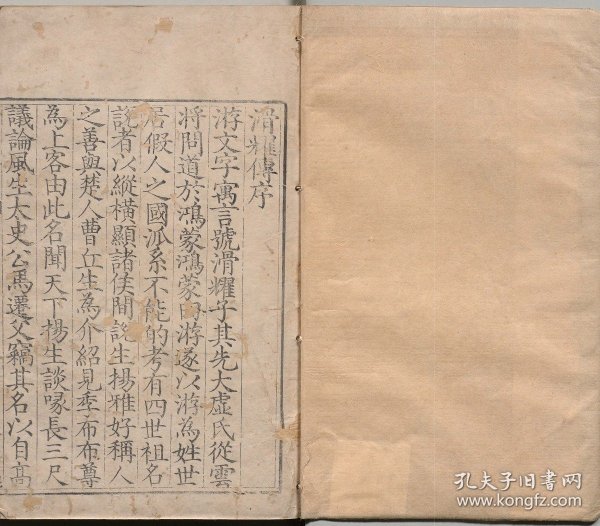 滑耀傳序
游文字寓言號滑耀子其先大虛氏從雲
將問道於鴻蒙鴻蒙曰游遂以游為姓世
居假人之國派系不能的考有四世祖名
説者以縱橫顯諸侯間説生揚雅好稱人
之善與楚人曹丘生為介紹見季布布尊
為上客由此名聞天下揚生談喙長三尺
議論風生太史公馬遷父竊其名以自高
孔夫子旧书网
www.kongfz.com